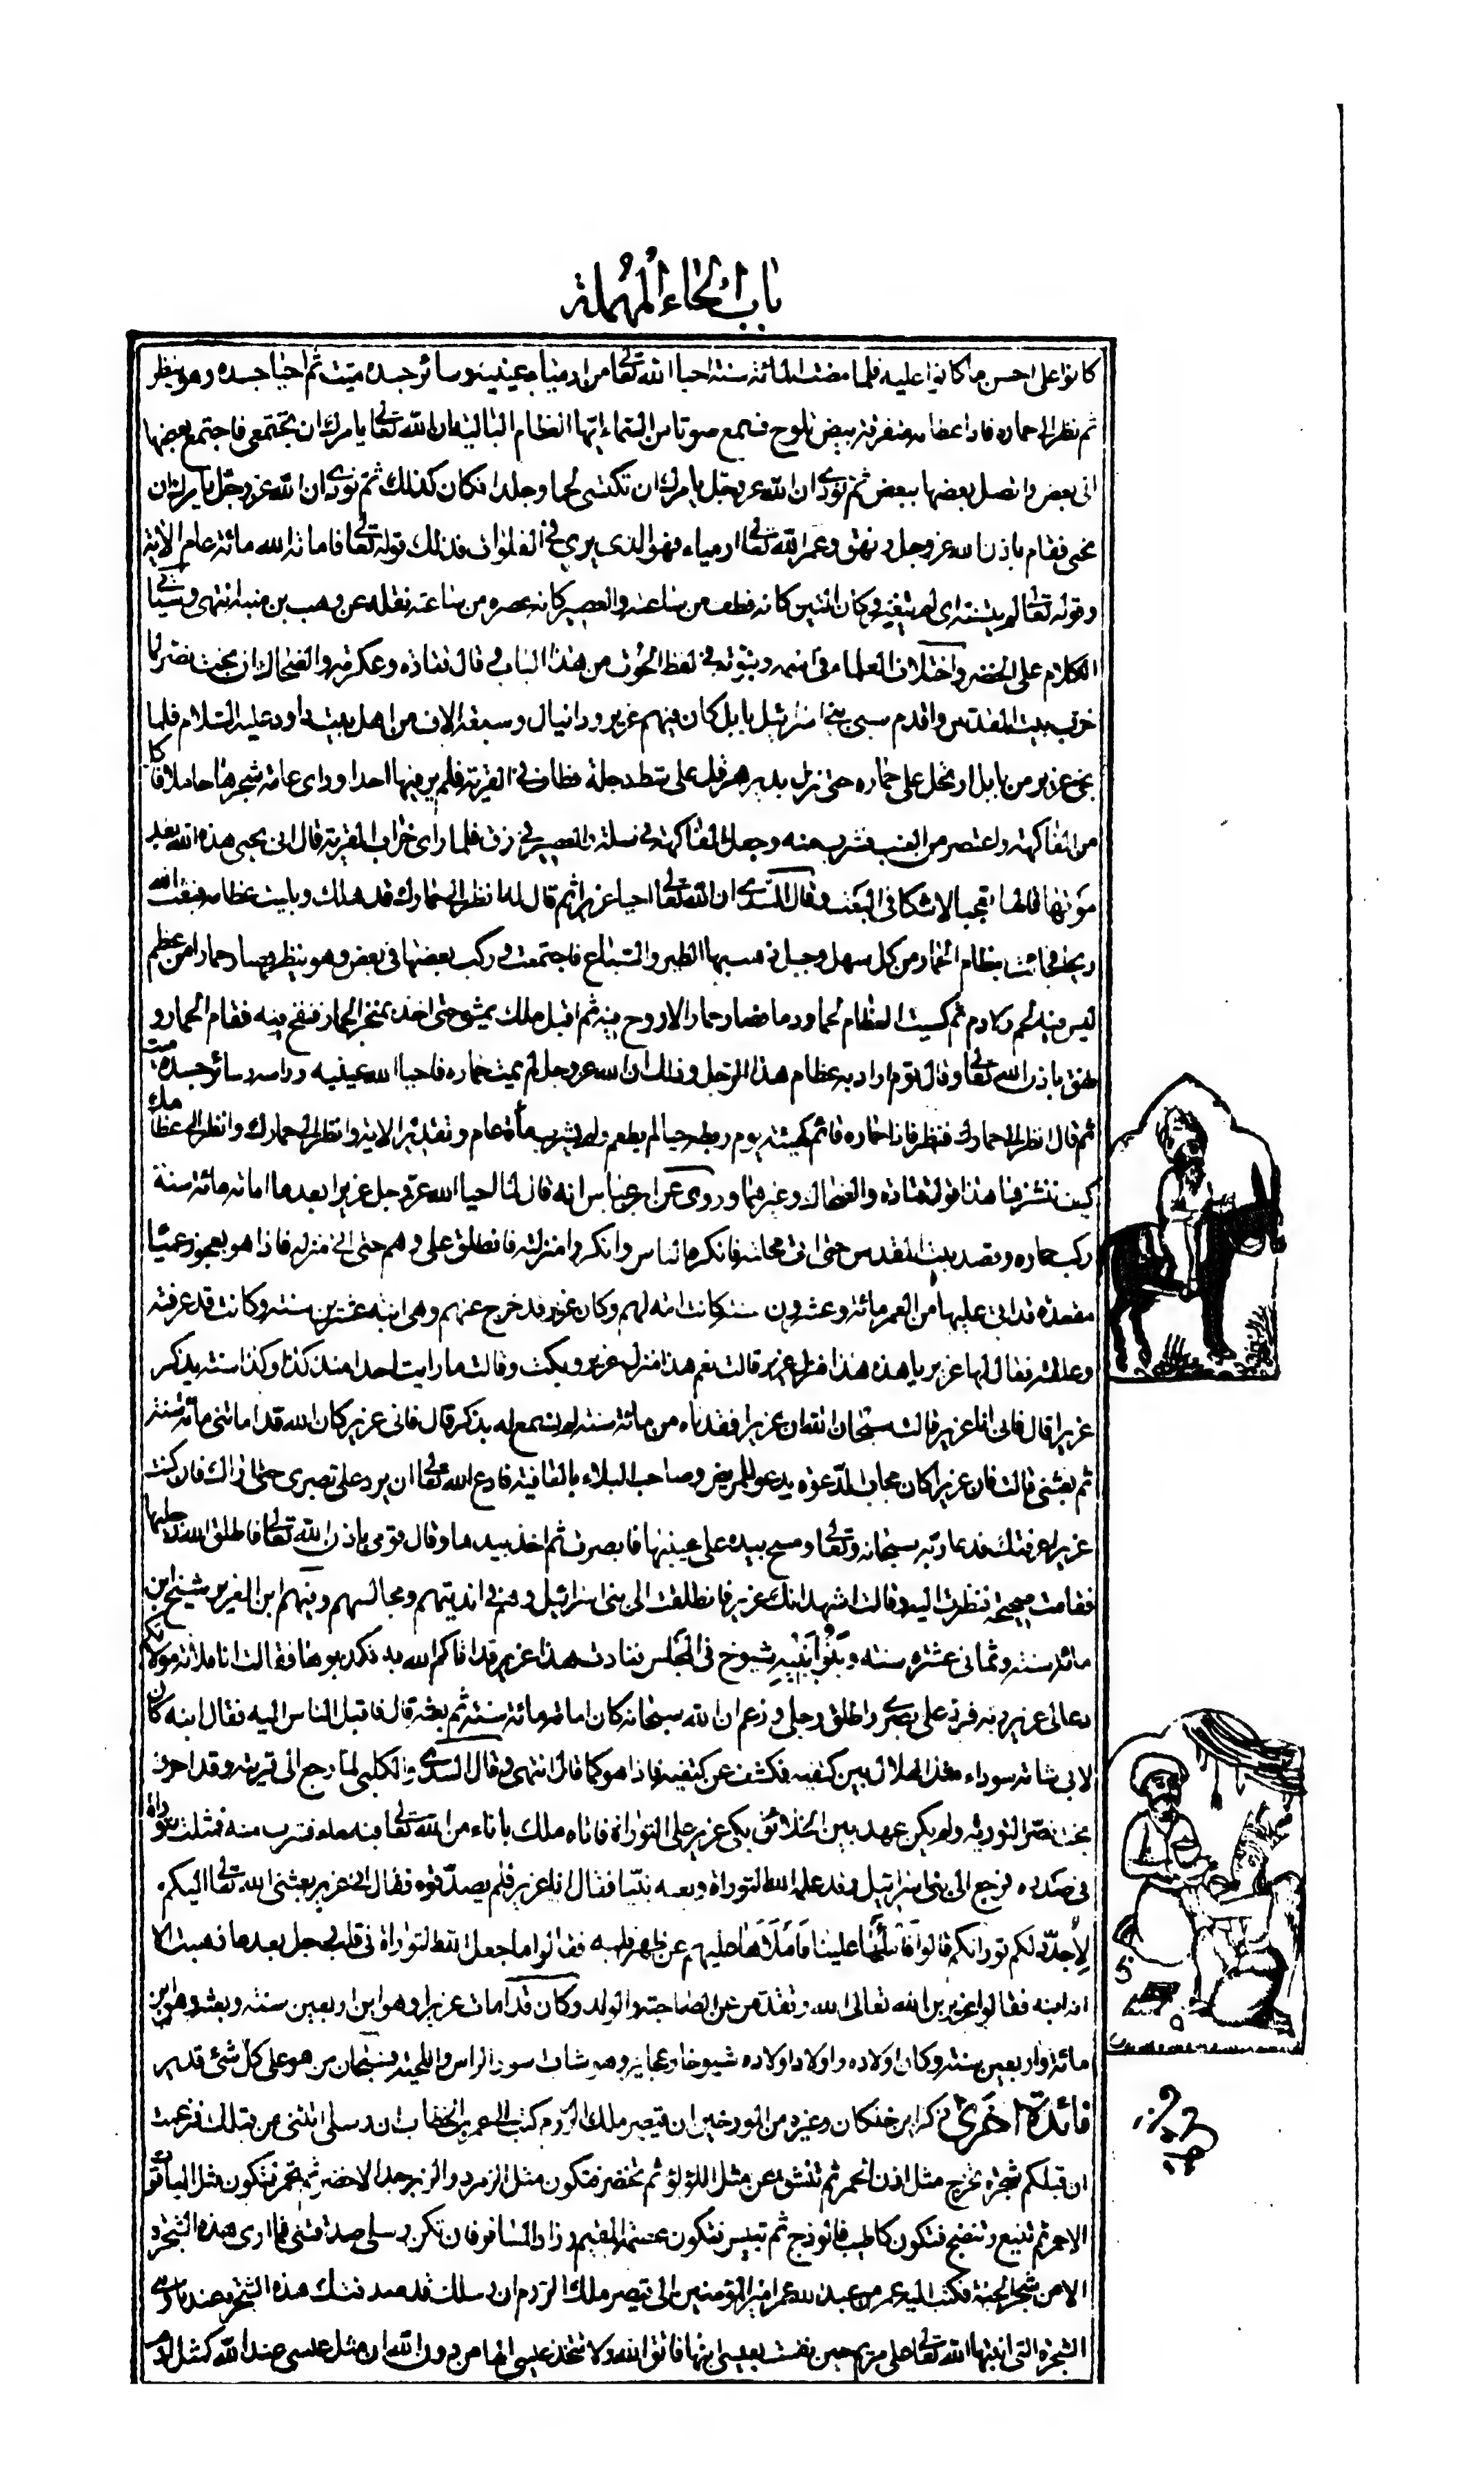 باب الحاء المهملة
كانوا على احسن ما كانوا عليه فلما مضت المائة سنة احيا الله تعالى من ارميا عينيه وسائر جسده ميت ثم احيا جسده وهو ينظر
ثم نظر الى حماره فاذا عظامه متفرقة بيض تلوح فسمع صوتا من السماء ايتها العظام البالية ان الله تعالى يامرك ان تجتمعى فاجتمع بعضها
الى بعض واتصل بعضها ببعض ثم نودى ان الله عز وجل يامرك ان تكتسى لحما وجلدا فكان كذلك ثم نودى ان الله عز وجل يامرك ان
تحيى فقام باذن الله عز وجل ونهق وعمر الله تعالى ارمياء فهو الذى يرى فى الفلوات فذلك قوله تعالى فاماته الله مائة عام الاية
وقوله تعالى لم يتسنه اى لم يتغير وكان التين كانه قطف من ساعته والعصير كانه عصر من ساعته نقله عن وهب بن منبه انتهى وسياتى
الكلام على الخضر واختلاف العلماء فى اسمه ونبوته فى لفظ الحوت من هذا الباب وقال قتاده وعكرمة والضحاك ان بخت نصر لما
خرب بيت المقدس واقدم سبى بنى اسرائيل بابل كان فيهم عزير ودانيال وسبعة الاف من اهل بيت داود عليه السلام فلما
نجى عزير من بابل ارتحل على حماره حتى نزل بدير هرقل على شط دجلة فطاف فى القرية فلم ير فيها احدا وراى عامة شجرها حاملا فاكل
من الفاكهة واعتصر من العنب فشرب منه وجعل الفاكهة فى سلة والعصير فى زق فلما راى خراب القرية قال انى يحيى هذه الله بعد
موتها قالها تعجبا لا شكا فى البعث وقال السدى ان الله تعالى احيا عزيرا ثم قال له انظر الى حمارك قد هلك وبليت عظامه فبعث الله
ريحا فجاءت بعظام الحمار من كل سهل وجبل ذهبت بها الطير والسباع فاجتمعت وركب بعضها فى بعض وهو ينظر فصار حمارا من عظم
ليس فيه لحم ولا دم ثم كسيت العظام لحما ودما فصار حمارا لا روح فيه ثم اقبل ملك يمشى حتى اخذ بمنخر الحمار فنفخ فيه فقام الحمار و
نهق باذن الله تعالى وقال قوم اراد به عظام هذا الرجل وذلك ان الله عز وجل لم يمت حماره فاحيا الله عينيه وراسه وسائر جسده ميت
ثم قال انظر الى حمارك فنظر فاذا حماره قائم كهيئته يوم ربطه حيا لم يطعم ولم يشرب مأة عام وتقدير الاية وانظر الى حمارك وانظر الى عظامك
كيف ننشزها هذا قول قتادة والضحاك وغيرهما وروى عن ابن عباس انه قال لما احيا الله عز وجل عزيرا بعد ما اماته مائة سنة
ركب حماره وقصد بيت المقدس حتى اتى محلته فانكره الناس وانكروا منزلته فانطلق على وهم حتى اتى منزله فاذا هو بعجوز عميا
مقعدة قد اتى عليها من العمر مائة وعشرون سنة كانت امة لهم وكان عزير قد خرج عنهم وهى ابنة عشرين سنة وكانت قد عرفته
وعقلته فقال لها عزير يا هذه هذا منزل عزير قالت نعم هذا منزل عزير وبكت وقالت ما رايت احدا منذ كذا وكذا سنة يذكر
عزيرا قال فانى انا عزير قالت سبحان الله ان عزيرا فقدناه من مائة سنة لم نسمع له بذكر قال فانى عزير كان الله قد اماتنى مائة سنة
ثم بعثنى قالت فان عزيرا كان مجاب الدعوة يدعو للمريض وصاحب البلاء بالعافية فادع الله تعالى ان يرد على بصرى حتى اراك فان كنت
عزيرا عرفتك فدعا ربه سبحانه وتعالى ومسح بيده على عينيها فابصرت ثم اخذ بيدها وقال قومى باذن الله تعالى فاطلق الله رجليها
فقامت صحيحة فنظرت اليه وقالت اشهد انك عزير فانطلقت الى بنى اسرائيل وهم فى انديتهم ومجالسهم وفيهم ابن العزير شيخ ابن
مائة سنة وثمانى عشره سنة وبنو ابنيه شيوخ فى المجلس فنادت هذا عزير قد اتاكم الله به فكذبوها فقالت انا فلانة مولاتكم
دعا لى عزير ربه فرد على بصرى واطلق رجلى وزعم ان الله سبحانه كان اماته مائة سنة ثم بعثه قال فاقبل الناس اليه فقال ابنه كان
لابى شامة سوداء مثل الهلال بين كتفيه فكشف عن كتفيه فاذا هو كما قال انتهى وقال السدى والكلبى لما رجع الى قريته وقد احرق
بخت نصر التورية ولم يكن عهد بين الخلائق بكى عزير على التوراة فاتاه ملك باناء من الله تعالى فيه ماء فشرب منه فمثلت توراة
فى صدره فرجع الى بنى اسرائيل وقد علمه الله التوراة وبعثه نبيا فقال انا عزير فلم يصدقوه فقال انى عزير بعثنى الله تعالى اليكم
لاجدد لكم توراتكم قالوا فاملها علينا فاملاها عليهم عن ظهر قلبه فقالوا ما جعل الله التوراة فى قلب رجل بعد ما ذهبت الا
انه ابنه فقالوا عزير بن الله تعالى الله وتقدس عن الصاحبة والولد وكان قد امات عزيرا وهو ابن اربعين سنة وبعثه وهو ابن
مائة واربعين سنة وكان اولاده واولاد اولاده شيوخا وعجايز وهو شاب سود الراس واللحية فسبحان من هو على كل شئ قدير
فائدة اخرى ذكر ابن خلكان وغيره من المورخين ان قيصر ملك الروم كتب الى عمر بن الخطاب ان رسلى اتتنى من قبلك فزعمت
ان قبلكم شجرة تخرج مثل اذن الحمر ثم تنشق عن مثل اللؤلؤ ثم تخضر فتكون مثل الزمرد والزبرجد الاخضر ثم تحمر فتكون مثل الياقوت
الاحمر ثم تينع وتنضج فتكون كاطيب فالوذج ثم تيبس فتكون عصمة للمقيم وزاد المسافر فان تكن رسلى صدقتنى فما ارى هذه الشجرة
الا من شجر الجنة فكتب اليه عمر من عبد الله عمر امير المؤمنين الى قيصر ملك الروم ان رسلك قد صدقتك هذه الشجرة عندنا وهى
الشجرة التى انبتها الله تعالى على مريم حين نفست بعيسى ابنها فاتق الله ولا تتخذ عيسى الها من دون الله ان مثل عيسى عند الله كمثل ادم